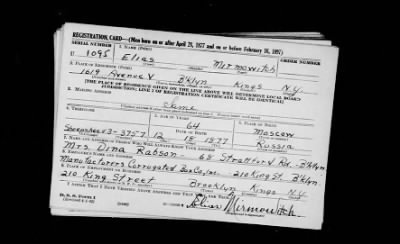 REGISTRATION CARD—(Men born on or after April 28, 1877 and on or before February 16, 1897)
SERIAL NUMBER 1. NAME (Print) ORDER NUMBER
U 1095 Elias Mirmowitch
2. PLACE OF RESIDENCE (Print)
1619 Avenue V B'klyn Kings N.Y.
[THE PLACE OF RESIDENCE GIVEN ON THE LINE ABOVE WILL DETERMINE LOCAL BOARD
JURISDICTION; LINE 2 OF REGISTRATION CERTIFICATE WILL BE IDENTICAL]
3. MAILING ADDRESS
Same
4. TELEPHONE 5. AGE IN YEARS 6. PLACE OF BIRTH
64 Moscow
DATE OF BIRTH
Sheepshead 3-3757 12 18 1877 Russia
7. NAME AND ADDRESS OF PERSON WHO WILL ALWAYS KNOW YOUR ADDRESS
Mrs. Dina Rabson - 68 Stratford Rd.- B'klyn
8. EMPLOYER'S NAME AND ADDRESS
Manufacturers Corrugated Box Co., Inc. - 210 King St. B'klyn
9. PLACE OF EMPLOYMENT OR BUSINESS
210 King Street Brooklyn Kings N.Y.
I AFFIRM THAT I HAVE VERIFIED ABOVE ANSWERS AND THAT THEY ARE TRUE.
D. S. S. Form 1
Elias Mirmowitch